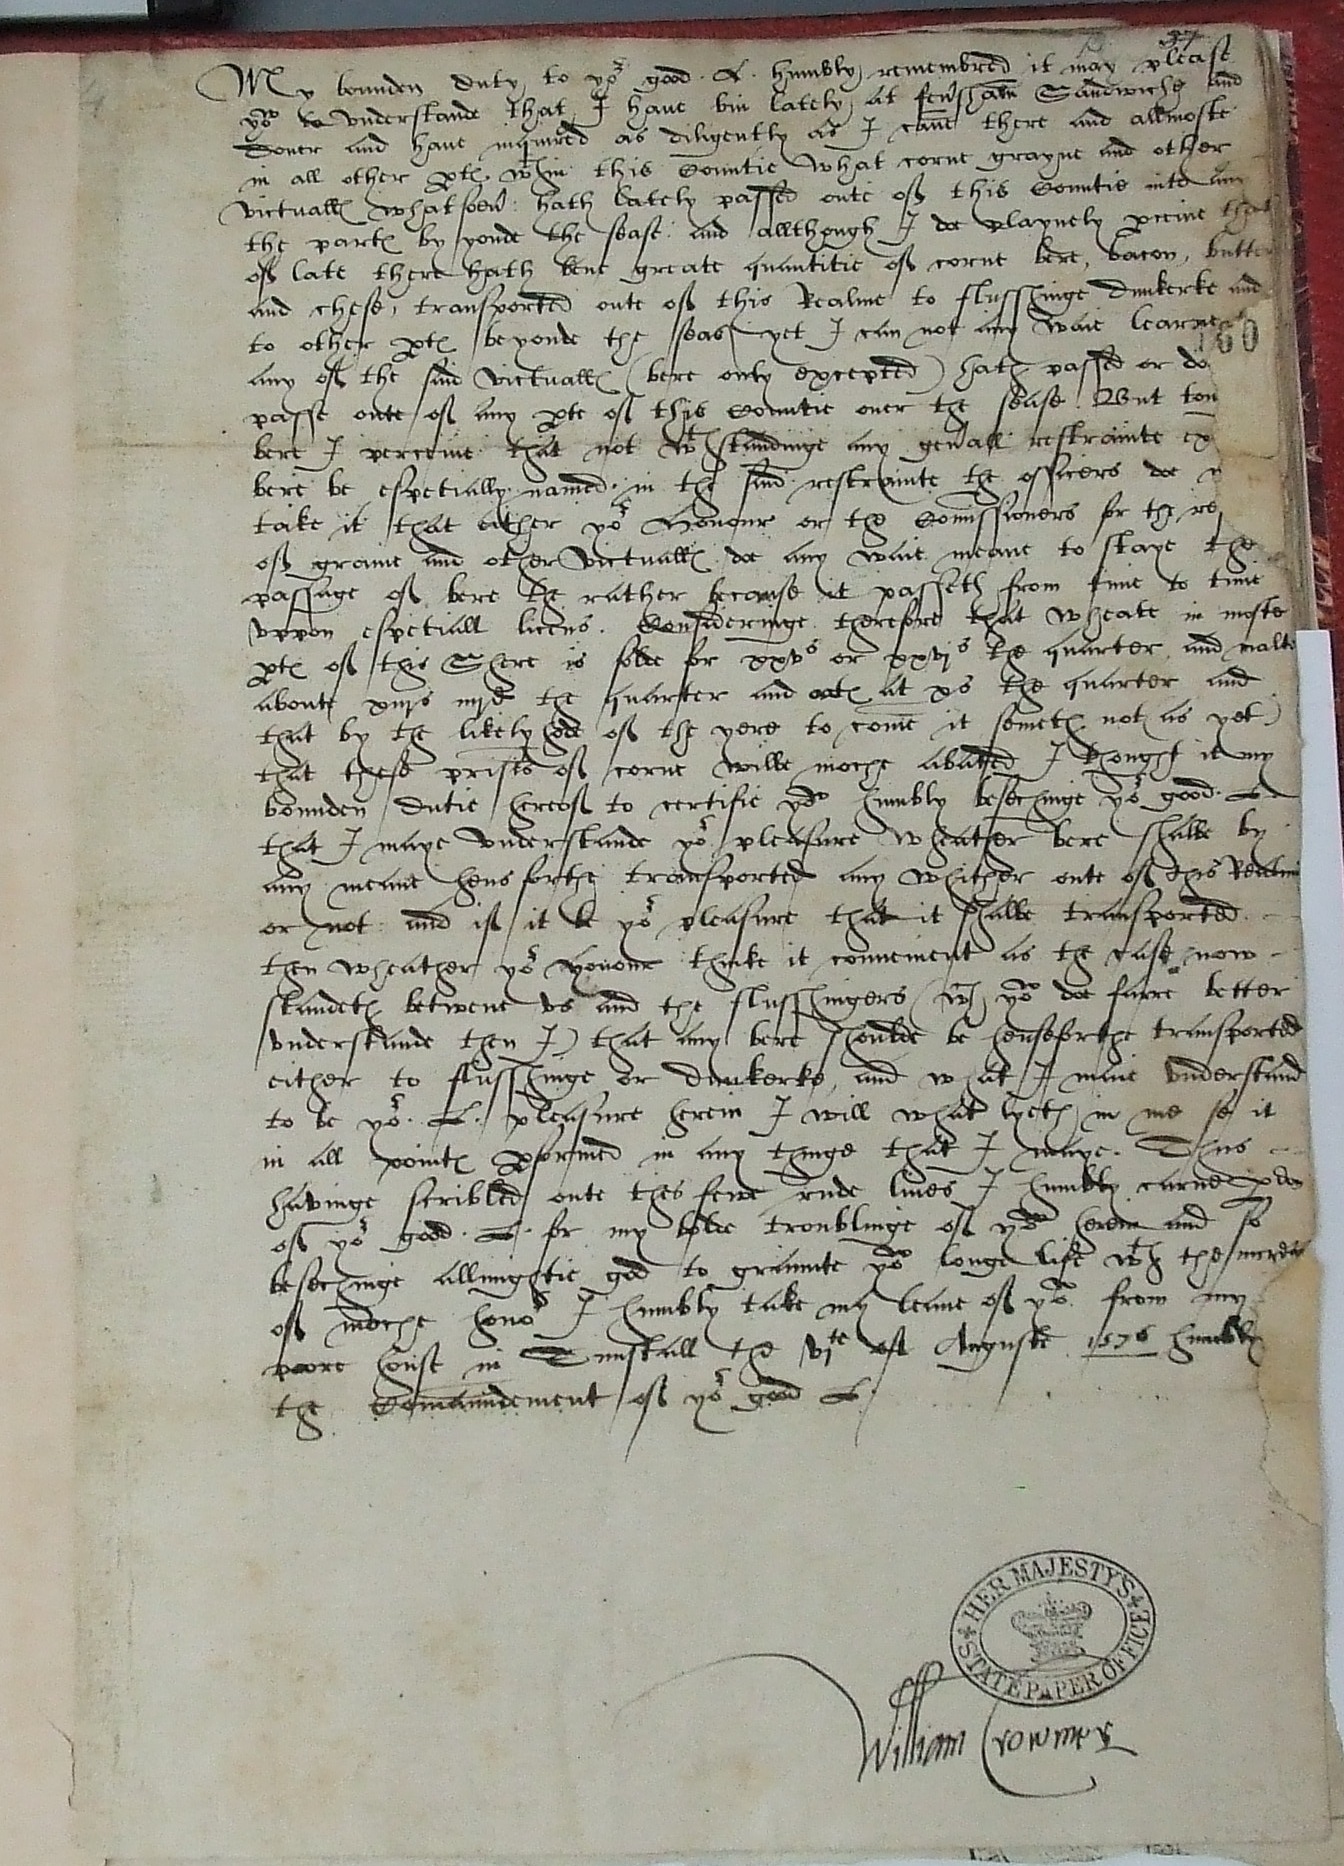 37
My bounden duty to yor good .L. humbly remembred it may please
you to understande that I have bin lately at feversham Sandwiche and
Dover and have inquired as diligently as I canne there and allmoste
in all other ptes wthin this Countie what corne grayne and other
victualles whatsoever hath lately passed oute off this Countie into any
the partes by yonde the sease. and allthough I doe playnely pceive that
off late there hath bene greate quantitie off corne bere, bacon, butter
and chese, transported oute off this Realme to flusshinge Dunkerke and
to other ptes beyonde the seas, yet I can not any waie learne
160
any off the said victualles (bere only excepted) hath passed or do
passe oute off any pte off this Countie over the sease. But tou
bere I perceive that not wthstandinge any genrall restrainte ex
bere be espetially named in the said restrainte the officers doe n
take it that either yor Honour or the Comissioners for the re
off graine and other victualles doe any waie meane to staye the
passage off bere the rather becawse it passeth from time to time
uppon espetiall licens. Consideringe therefore that wheate in moste
ptes off this Shere is solde for xxvs or xxvjs the quarter, and malte
aboute xiijs iiijd the quarter and otes at xs the quarter and
that by the likelyhode off the yere to come it semeth not as yet
that these prises off corne wilbe moche abated I thought it my
bounden dutie hereoff to certifie you humbly besechinge yor good .L.
that I maye understande yor pleasure wheather bere shalbe by
any meane hensforthe transported any whither oute off this Realme
or not. and iff it be yor pleasure that it shalbe transported
then wheather yor honour thinke it convenient as the case now
standeth betwene us and the flusshingers (wch you doe farre better
understande then I) that any bere shoulde be henseforthe transported
either to flusshinge or Dunkerke, and what I maie understand
to be yor .L. pleasure herein I will what lyeth in me se it
in all pointes pformed in any thinge that I maye. Thus
havinge scribled oute thes fewe rude lines I humbly crave pdon
off yor good .L. for my bolde troublinge off you herein and so
besechinge allmightie god to graunte you longe life wth the increase
off moche honor I humbly take my leave off you. from my
poore house in Tunstall the vjte off Auguste 1576 humbly
the Comaundement off yor good L.
HER MAJESTY'S STATE PAPER OFFICE
William Crowmer